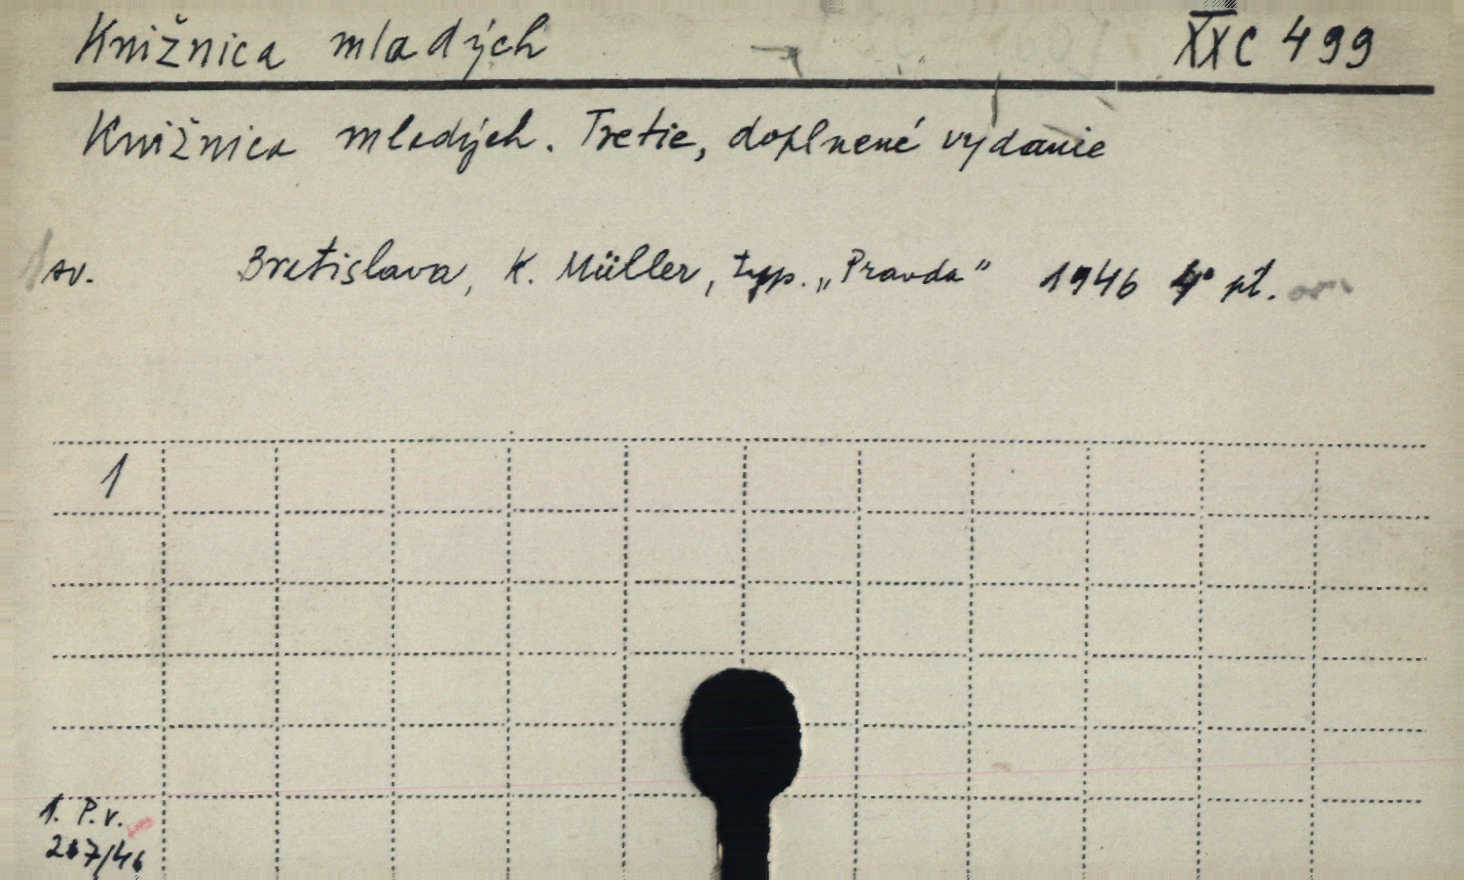 Knižnica mladých XXC 499
Knižnica mladých. Tretie, doplnené vydanie
1 sv. Bratislava, K. Müller, typ. „Pravda" 1946 4° pt.
1
1. P.v.
267/46